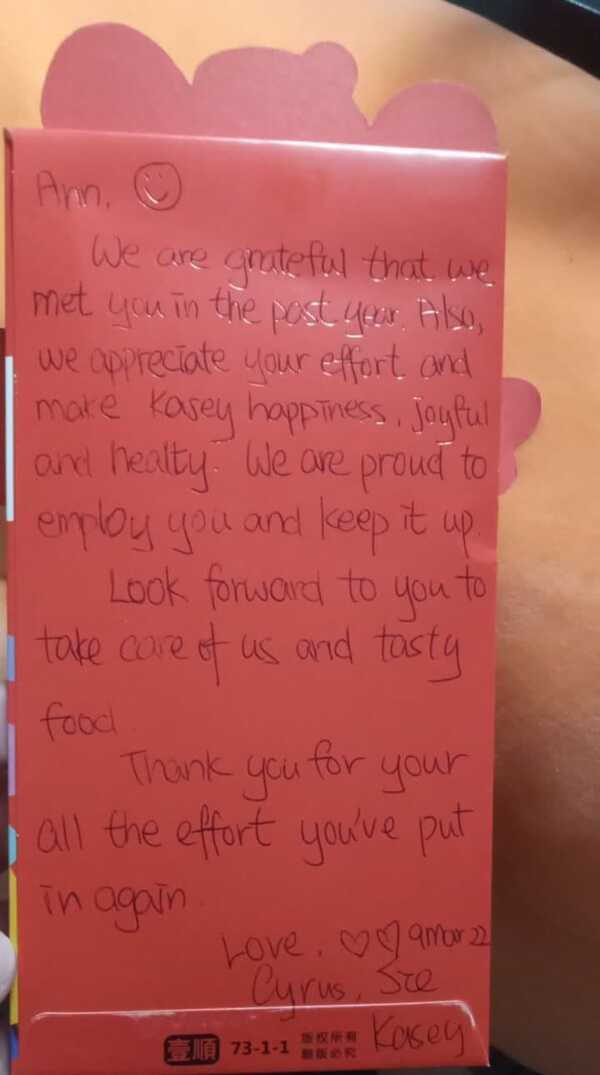 Ann,
We are grateful that we
met you in the past year. Also,
we appreciate your effort and
make Kasey happiness, joyful
and healty. We are proud to
employ you and keep it up.
Look forward to you to
take care of us and tasty
food.
Thank you for your
all the effort you've put
in again.
Love, ♡♡ 9 Mar 22
Cyrus, Sze
Kasey
壹順 73-1-1 版权所有
翻版必究